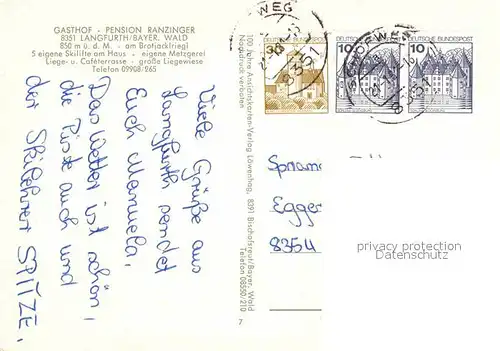 GASTHOF - PENSION RANZINGER
8351 LANGFURTH/BAYER. WALD
850 m ü. d. M. - am Brotjacklriegl
5 eigene Skilifte am Haus - eigene Metzgerei
Liege- u. Caféterrasse - große Liegewiese
Telefon 09908/265
Viele Grüße aus
Langfurth sendet
Euch Manuela,
Das Wetter ist schön,
die Piste auch und
der Skilehrer SPITZE.
100 Jahre Ansichtskarten-Verlag Löwenhag, 8391 Bischofsreut/Bayer. Wald
Nachdruck verboten
Telefon 08550/210
7
WEG
8351
DEUTSCHE BUNDESPOST
10
DEUTSCHE BUNDESPOST
10
8351
Egge
8354
privacy protection
Datenschutz